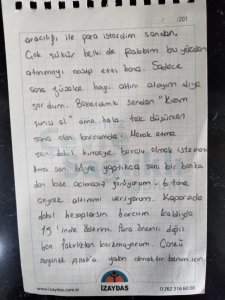 / /201
aracılığı ile para isterdim senden.
Çok şükür belki de Rabbim bu yüzden
atanmayı nasip etti bana. Sadece
sana güzelce hangi altını alayım diye
sordum. Bakardımki senden "Kızım
şunu al" ama hala tek düşünen
sana olan borcumda. Merak etme
sen dahil kimseye borçlu olmak istemem
ama sen böyle yaptıkça seni bir banka
dan bile acımasız görüyorum. 6 tane
çeyrek altınımı veriyorum. Kaparoda
dahil hesaplarsın borcum kaldıysa
15'inde öderim. Para önemli değil
ben fakirlikten korkmuyorum. Çünkü
zenginlik Allah'a yakın olmaktır benim için
www.izaydas.com
İZAYDAŞ
0 262 316 60 00